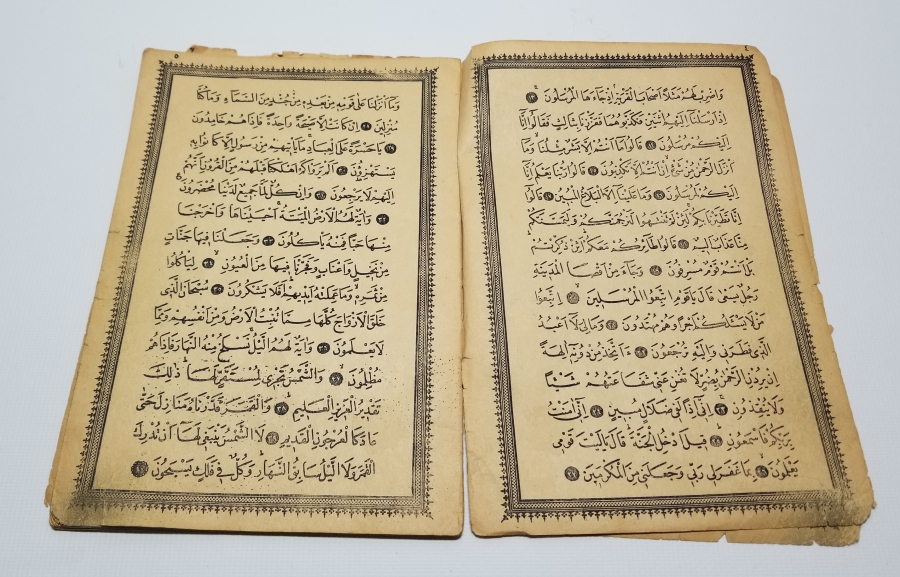 ٤
وَاضْرِبْ لَهُمْ مَثَلًا اَصْحَابَ الْقَرْيَةِ اِذْ جَاءَهَا الْمُرْسَلُونَ ١٣
اِذْ اَرْسَلْنَا اِلَيْهِمُ اثْنَيْنِ فَكَذَّبُوهُمَا فَعَزَّزْنَا بِثَالِثٍ فَقَالُوا اِنَّا
اِلَيْكُمْ مُرْسَلُونَ ١٤ قَالُوا مَا اَنْتُمْ اِلَّا بَشَرٌ مِثْلُنَا وَمَا
اَنْزَلَ الرَّحْمٰنُ مِنْ شَيْءٍ اِنْ اَنْتُمْ اِلَّا تَكْذِبُونَ ١٥ قَالُوا رَبُّنَا يَعْلَمُ اِنَّا
اِلَيْكُمْ لَمُرْسَلُونَ ١٦ وَمَا عَلَيْنَا اِلَّا الْبَلَاغُ الْمُبِينُ ١٧ قَالُوا
اِنَّا تَطَيَّرْنَا بِكُمْ لَئِنْ لَمْ تَنْتَهُوا لَنَرْجُمَنَّكُمْ وَلَيَمَسَّنَّكُمْ
مِنَّا عَذَابٌ اَلِيمٌ ١٨ قَالُوا طَائِرُكُمْ مَعَكُمْ اَئِنْ ذُكِّرْتُمْ
بَلْ اَنْتُمْ قَوْمٌ مُسْرِفُونَ ١٩ وَجَاءَ مِنْ اَقْصَا الْمَدِينَةِ
رَجُلٌ يَسْعٰى قَالَ يَاقَوْمِ اتَّبِعُوا الْمُرْسَلِينَ ٢٠ اِتَّبِعُوا
مَنْ لَا يَسْئَلُكُمْ اَجْرًا وَهُمْ مُهْتَدُونَ ٢١ وَمَالِيَ لَا اَعْبُدُ
الَّذِى فَطَرَنِى وَاِلَيْهِ تُرْجَعُونَ ٢٢ ءَاَتَّخِذُ مِنْ دُونِهِ اٰلِهَةً
اِنْ يُرِدْنِ الرَّحْمٰنُ بِضُرٍّ لَا تُغْنِ عَنِّى شَفَاعَتُهُمْ شَيْئًا
وَلَا يُنْقِذُونِ ٢٣ اِنِّى اِذًا لَفِى ضَلَالٍ مُبِينٍ ٢٤ اِنِّى اٰمَنْتُ
بِرَبِّكُمْ فَاسْمَعُونِ ٢٥ قِيلَ ادْخُلِ الْجَنَّةَ قَالَ يَالَيْتَ قَوْمِى
يَعْلَمُونَ ٢٦ بِمَا غَفَرَ لِى رَبِّى وَجَعَلَنِى مِنَ الْمُكْرَمِينَ ٢٧
٥
وَمَا اَنْزَلْنَا عَلٰى قَوْمِهِ مِنْ بَعْدِهِ مِنْ جُنْدٍ مِنَ السَّمَاءِ وَمَا كُنَّا
مُنْزِلِينَ ٢٨ اِنْ كَانَتْ اِلَّا صَيْحَةً وَاحِدَةً فَاِذَا هُمْ خَامِدُونَ
٢٩ يَاحَسْرَةً عَلَى الْعِبَادِ مَا يَاْتِيهِمْ مِنْ رَسُولٍ اِلَّا كَانُوا بِهِ
يَسْتَهْزِؤُنَ ٣٠ اَلَمْ يَرَوْا كَمْ اَهْلَكْنَا قَبْلَهُمْ مِنَ الْقُرُونِ اَنَّهُمْ
اِلَيْهِمْ لَا يَرْجِعُونَ ٣١ وَاِنْ كُلٌّ لَمَّا جَمِيعٌ لَدَيْنَا مُحْضَرُونَ
٣٢ وَاٰيَةٌ لَهُمُ الْاَرْضُ الْمَيْتَةُ اَحْيَيْنَاهَا وَاَخْرَجْنَا
مِنْهَا حَبًّا فَمِنْهُ يَاْكُلُونَ ٣٣ وَجَعَلْنَا فِيهَا جَنَّاتٍ
مِنْ نَخِيلٍ وَاَعْنَابٍ وَفَجَّرْنَا فِيهَا مِنَ الْعُيُونِ ٣٤ لِيَاْكُلُوا
مِنْ ثَمَرِهِ وَمَا عَمِلَتْهُ اَيْدِيهِمْ اَفَلَا يَشْكُرُونَ ٣٥ سُبْحَانَ الَّذِى
خَلَقَ الْاَزْوَاجَ كُلَّهَا مِمَّا تُنْبِتُ الْاَرْضُ وَمِنْ اَنْفُسِهِمْ وَمِمَّا
لَا يَعْلَمُونَ ٣٦ وَاٰيَةٌ لَهُمُ الَّيْلُ نَسْلَخُ مِنْهُ النَّهَارَ فَاِذَا هُمْ
مُظْلِمُونَ ٣٧ وَالشَّمْسُ تَجْرِى لِمُسْتَقَرٍّ لَهَا ذٰلِكَ
تَقْدِيرُ الْعَزِيزِ الْعَلِيمِ ٣٨ وَالْقَمَرَ قَدَّرْنَاهُ مَنَازِلَ حَتّٰى
عَادَ كَالْعُرْجُونِ الْقَدِيمِ ٣٩ لَا الشَّمْسُ يَنْبَغِى لَهَا اَنْ تُدْرِكَ
الْقَمَرَ وَلَا الَّيْلُ سَابِقُ النَّهَارِ وَكُلٌّ فِى فَلَكٍ يَسْبَحُونَ ٤٠